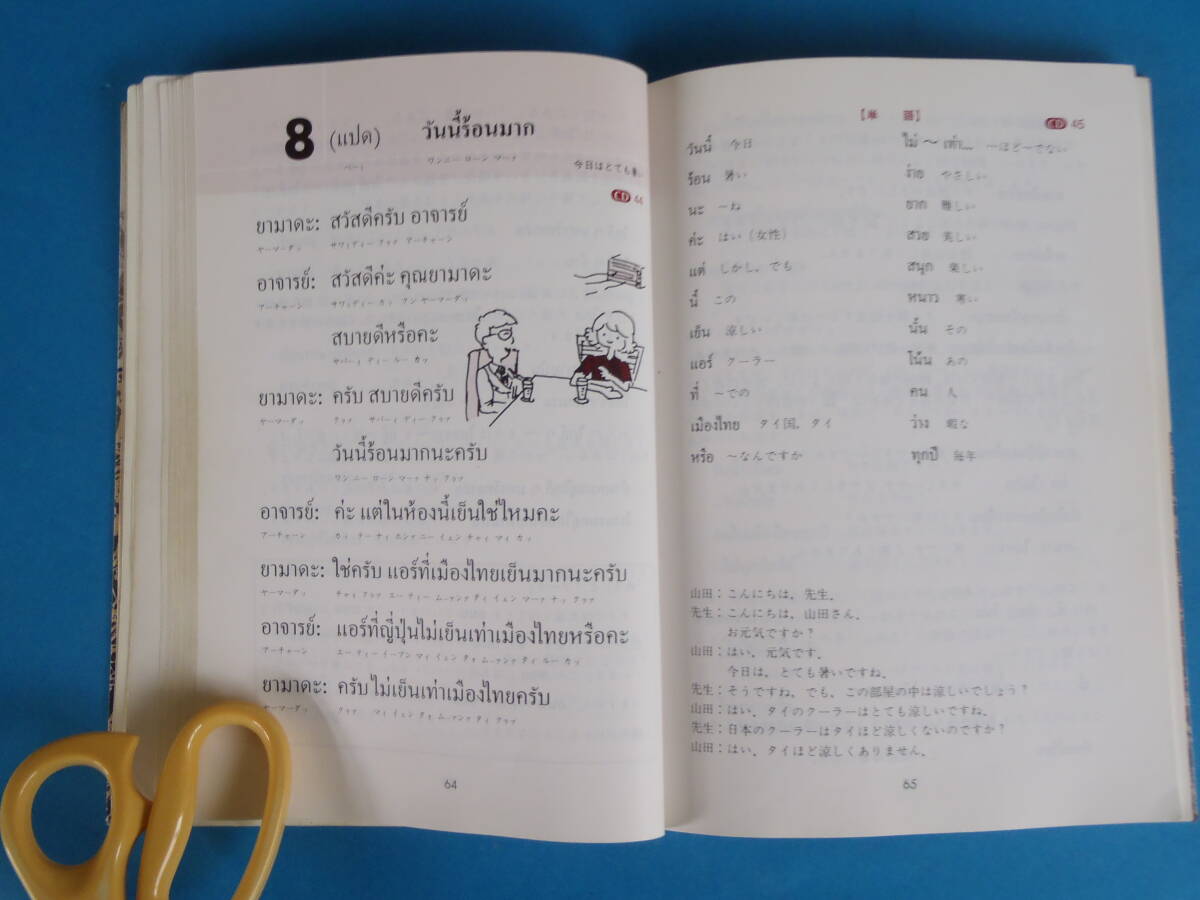 8 (แปด) วันนี้ร้อนมาก
ワンニー ローン マーク
今日はとても暑い
CD 44
ยามาดะ: สวัสดีครับ อาจารย์
ヤーマーダッ サワッディー クラァ アーチャーン
อาจารย์: สวัสดีค่ะ คุณยามาดะ
アーチャーン サワッディー カッ クン ヤーマーダッ
สบายดีหรือคะ
サバーィ ディー ルー カッ
ยามาดะ: ครับ สบายดีครับ
ヤーマーダッ クラァ サバーィ ディー クラァ
วันนี้ร้อนมากนะครับ
ワン ニー ローン マーク ナッ クラァ
อาจารย์: ค่ะ แต่ในห้องนี้เย็นใช่ไหมคะ
アーチャーン
ยามาดะ: ใช่ครับ แอร์ที่เมืองไทยเย็นมากนะครับ
ヤーマーダッ
อาจารย์: แอร์ที่ญี่ปุ่นไม่เย็นเท่าเมืองไทยหรือคะ
アーチャーン
ยามาดะ: ครับ ไม่เย็นเท่าเมืองไทยครับ
ヤーマーダッ
64
【単 語】
CD 45
วันนี้ 今日
ร้อน 暑い
นะ ーね
ค่ะ はい（女性）
แต่ しかし，でも
นี้ この
เย็น 涼しい
แอร์ クーラー
ที่ 〜での
เมืองไทย タイ国，タイ
หรือ 〜なんですか
ไม่ 〜 เท่า... 〜ほど〜でない
ง่าย やさしい
ยาก 難しい
สวย 美しい
สนุก 楽しい
หนาว 寒い
นั้น その
โน้น あの
คน 人
ว่าง 暇な
ทุกปี 毎年
山田：こんにちは，先生．
先生：こんにちは，山田さん．
お元気ですか？
山田：はい，元気です．
今日は，とても暑いですね．
先生：そうですね，でも，この部屋の中は涼しいでしょう？
山田：はい，タイのクーラーはとても涼しいですね．
先生：日本のクーラーはタイほど涼しくないのですか？
山田：はい，タイほど涼しくありません．
65